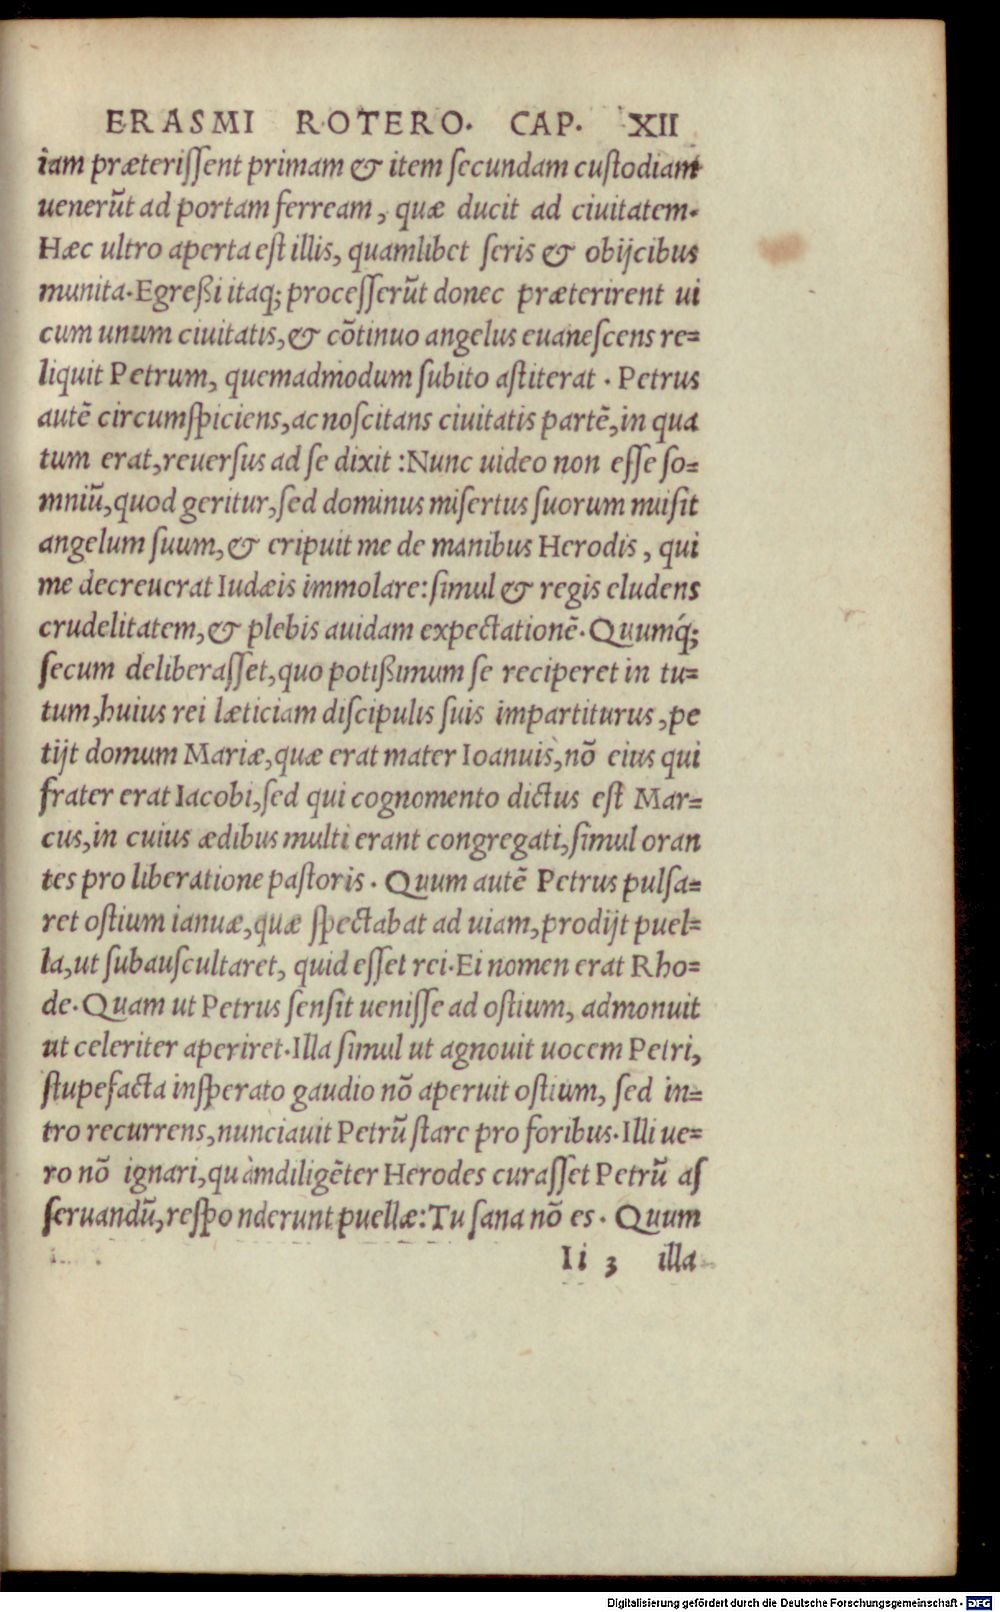 ERASMI ROTERO. CAP. XII
iam præteriſſent primam & item ſecundam cuſtodiam
uenerũt ad portam ferream, quæ ducit ad ciuitatem.
Hæc ultro aperta eſt illis, quamlibet ſeris & obijcibus
munita. Egreßi itaq; proceſſerũt donec præterirent ui
cum unum ciuitatis, & cõtinuo angelus euaneſcens re=
liquit Petrum, quemadmodum ſubito aſtiterat. Petrus
autẽ circumſpiciens, ac noſcitans ciuitatis partẽ, in qua
tum erat, reuerſus ad ſe dixit: Nunc uideo non eſſe ſo=
mniũ, quod geritur, ſed dominus miſertus ſuorum miſit
angelum ſuum, & eripuit me de manibus Herodis, qui
me decreuerat Iudæis immolare: ſimul & regis eludens
crudelitatem, & plebis auidam expectationẽ. Quumq́;
ſecum deliberaſſet, quo potißimum ſe reciperet in tu=
tum, huius rei læticiam diſcipulis ſuis impartiturus, pe
tijt domum Mariæ, quæ erat mater Ioanuis, nõ eius qui
frater erat Iacobi, ſed qui cognomento dictus eſt Mar=
cus, in cuius ædibus multi erant congregati, ſimul oran
tes pro liberatione paſtoris. Quum autẽ Petrus pulſa=
ret oſtium ianuæ, quæ ſpectabat ad uiam, prodijt puel=
la, ut ſubauſcultaret, quid eſſet rei. Ei nomen erat Rho=
de. Quam ut Petrus ſenſit ueniſſe ad oſtium, admonuit
ut celeriter aperiret. Illa ſimul ut agnouit uocem Petri,
ſtupefacta inſperato gaudio nõ aperuit oſtium, ſed in=
tro recurrens, nunciauit Petrũ ſtare pro foribus. Illi ue=
ro nõ ignari, quàmdiligẽter Herodes curaſſet Petrũ aſ
ſeruandũ, reſpo nderunt puellæ: Tu ſana nõ es. Quum
Ii 3 illa
Digitalisierung gefördert durch die Deutsche Forschungsgemeinschaft - DFG